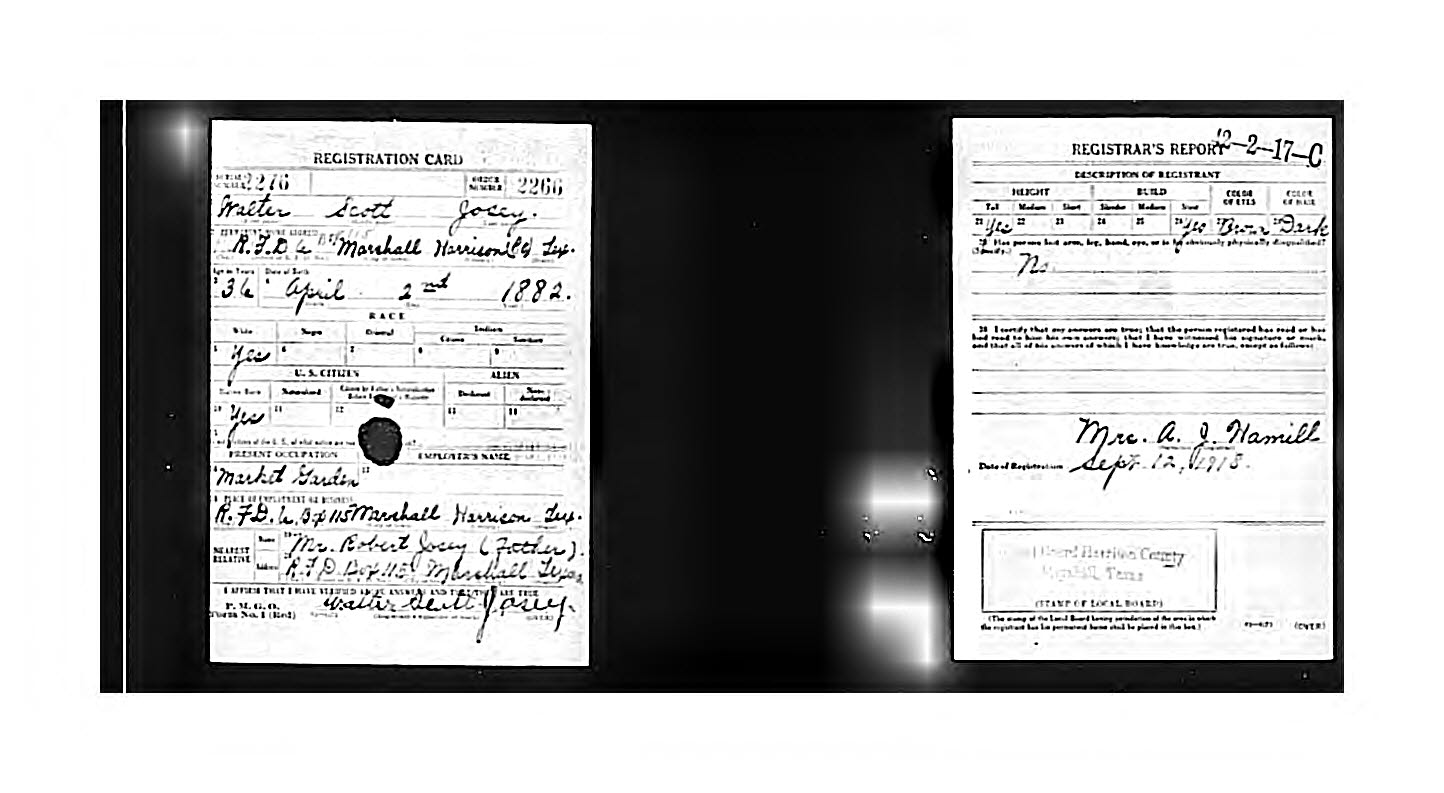 REGISTRATION CARD
SERIAL NUMBER 2276 ORDER NUMBER 2266
Walter Scott Josey.
R.F.D. 6 Box 115 Marshall Harrison Co Tex.
Age in Years Date of Birth
36 April 2nd 1882.
RACE
White Negro Oriental Indian
Citizen
5 Yes 6 7 8 9
U. S. CITIZEN ALIEN
Native Born Naturalized Declarant
10 Yes 11 12 13 14
PRESENT OCCUPATION EMPLOYER'S NAME
Market Garden
PLACE OF EMPLOYMENT OR BUSINESS
R.F.D. 6, Box 115 Marshall Harrison Tex.
NEAREST RELATIVE
Name Mr. Robert Josey (Father).
Address R.F.D. Box 115 Marshall Texas
I AFFIRM THAT I HAVE VERIFIED ABOVE ANSWERS AND THAT THEY ARE TRUE
P. M. G. O.
Form No. 1 (Red) Walter Scott Josey.
(OVER)
REGISTRAR'S REPORT 42-2-17-C
DESCRIPTION OF REGISTRANT
HEIGHT BUILD COLOR OF EYES COLOR OF HAIR
Tall Medium Short Slender Medium Stout
21 Yes 22 23 24 25 26 Yes 27 Brown 28 Dark
29 Has person lost arm, leg, hand, eye, or is he obviously physically disqualified?
(Specify.) No.
30 I certify that my answers are true; that the person registered has read or has
had read to him his own answers; that I have witnessed his signature or mark,
and that all of his answers of which I have knowledge are true, except as follows:
Mrs. A. J. Hamill
Date of Registration Sept. 12, 1918.
Board Harrison County
Marshall, Texas
(STAMP OF LOCAL BOARD)
(The stamp of the Local Board having jurisdiction of the area in which
the registrant has his permanent home shall be placed in this box.)
(OVER)